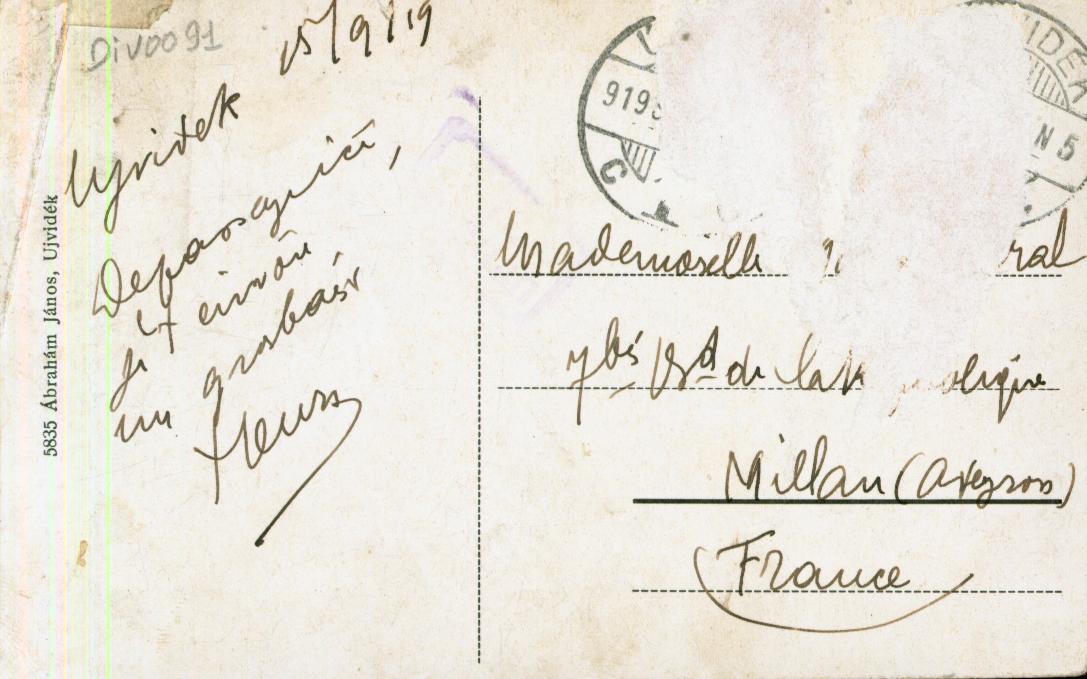 Divoo91
15/9/19
Ujvidek
Depassagnici,
je t'envoie
un gros baiser
Henri
5835 Ábrahám János, Ujvidék
919
C
VIDÉK
N 5
Mademoiselle ral
7 bis Bd de la olique
Millau (Aveyron)
France